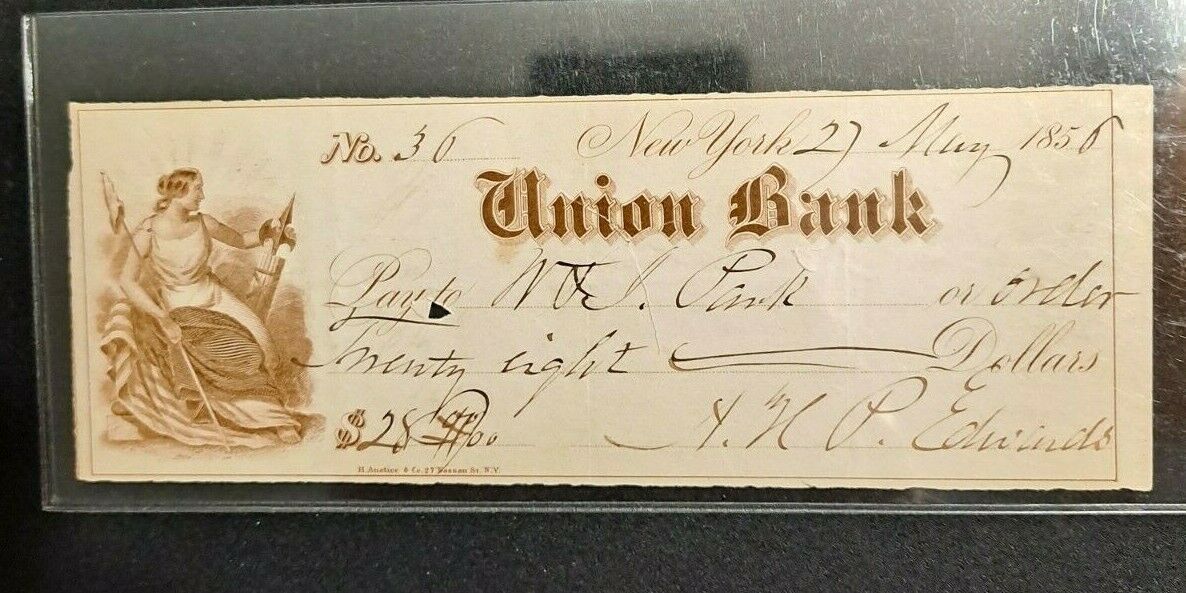 No. 36 New York 27 May 1856
Union Bank
Pay to W & J. Park or order
Twenty eight Dollars
$28 00 A. H. P. Edwards
H. Anstice & Co. 27 Nassau St. N.Y.